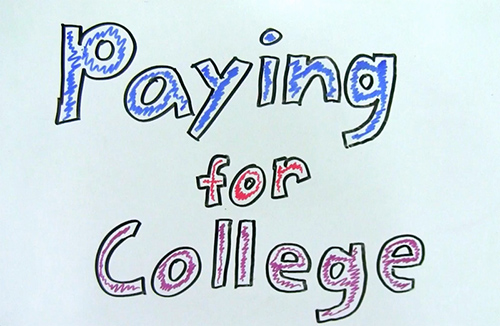 Paying
for
College